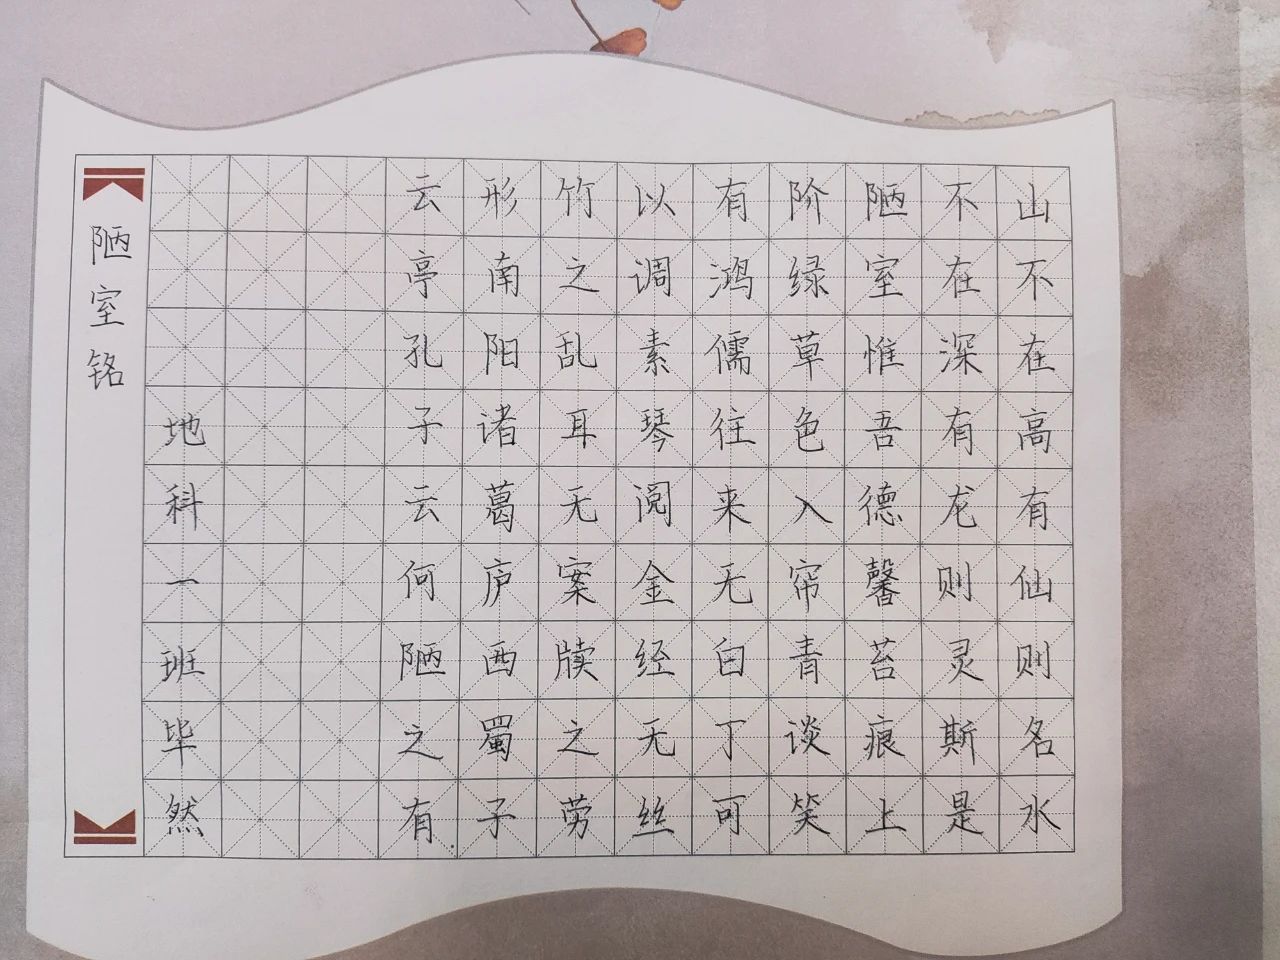 陋室铭
山不在高有仙则名水
不在深有龙则灵斯是
陋室惟吾德馨苔痕上
阶绿草色入帘青谈笑
有鸿儒往来无白丁可
以调素琴阅金经无丝
竹之乱耳无案牍之劳
形南阳诸葛庐西蜀子
云亭孔子云何陋之有
地科一班毕然